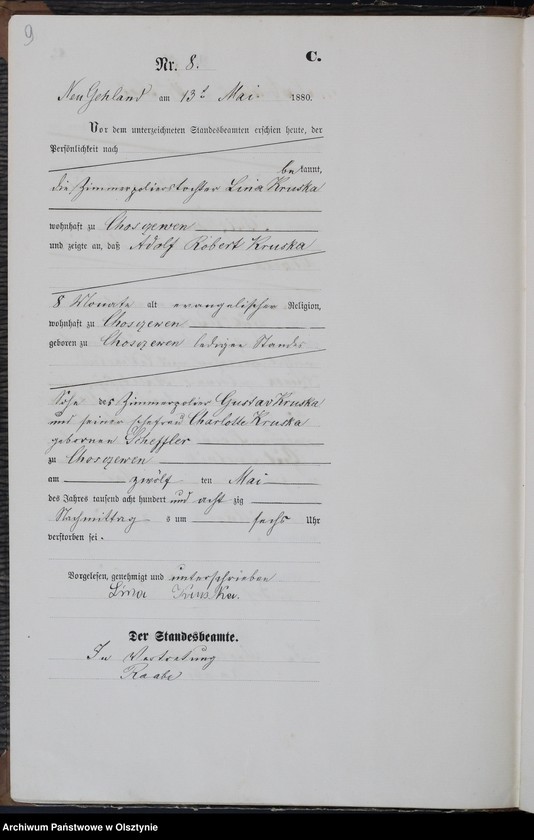 9
C.
Nr. 8.
Neu Gehland am 13ᵗ Mai 1880.
Vor dem unterzeichneten Standesbeamten erschien heute, der
Persönlichkeit nach
bekannt,
die Zimmerpolierstochter Lina Kruska
wohnhaft zu Choszewen
und zeigte an, daß Adolf Robert Kruska
8 Monate alt evangelischer Religion,
wohnhaft zu Choszewen
geboren zu Choszewen ledigen Standes
Sohn des Zimmerpolier Gustav Kruska
und seiner Ehefrau Charlotte Kruska
gebornen Scheffler
zu Choszewen
am zwölf ten Mai
des Jahres tausend acht hundert und acht zig
Nachmittag s um sechs Uhr
verstorben sei.
Vorgelesen, genehmigt und unterschrieben
Lina Kruska.
Der Standesbeamte.
In Vertretung
Raabe
Archiwum Państwowe w Olsztynie